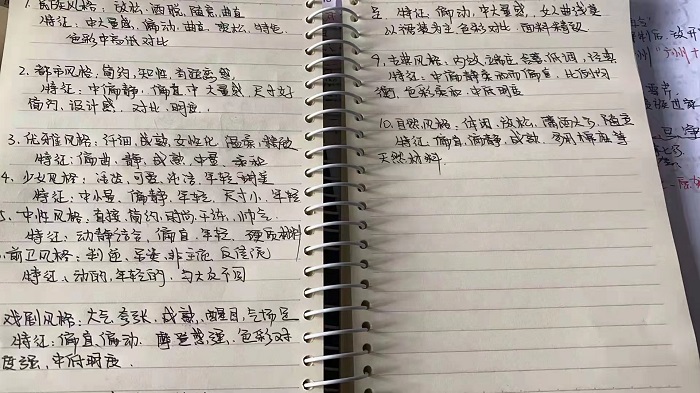 1. 民族风格: 放松, 洒脱, 随意, 曲直
特征: 中大量感, 偏动, 曲直, 宽松, 特色,
色彩中高纯对比
2. 都市风格, 简约, 知性, 有距离感,
特征: 中偏静, 偏直, 中大量感, 尺寸好
简约, 设计感, 对比, 明度.
3. 优雅风格: 纤细, 成熟, 女性化, 温柔, 精致
特征: 偏曲, 静, 成熟, 中量,
4. 少女风格: 活泼, 可爱, 纯洁, 年轻
特征: 中小量, 偏静, 年轻, 尺寸小, 年轻
5. 中性风格: 直接, 简约, 时尚, 干练, 帅气
特征: 动静结合, 偏直, 年轻, 硬质材料
前卫风格: 叛逆, 另类, 非主流, 反传统
特征: 动的, 年轻的, 与大众不同
戏剧风格: 大气, 夸张, 成熟, 醒目, 气场足
特征: 偏直, 偏动, 摩登感强, 色彩对
度强, 中低明度.
足, 特征, 偏动, 中大量感, 女人曲线美
以裙装为主, 色彩对比, 面料精致
9, 古典风格, 内敛, 端庄, 低调, 经典
特征: 中偏静, 柔而偏直, 比例均
衡, 色彩柔和, 中低明度
10, 自然风格: 休闲, 放松, 潇洒大气, 随意
特征: 偏直, 偏静, 成熟, 多用棉麻等
天然材料